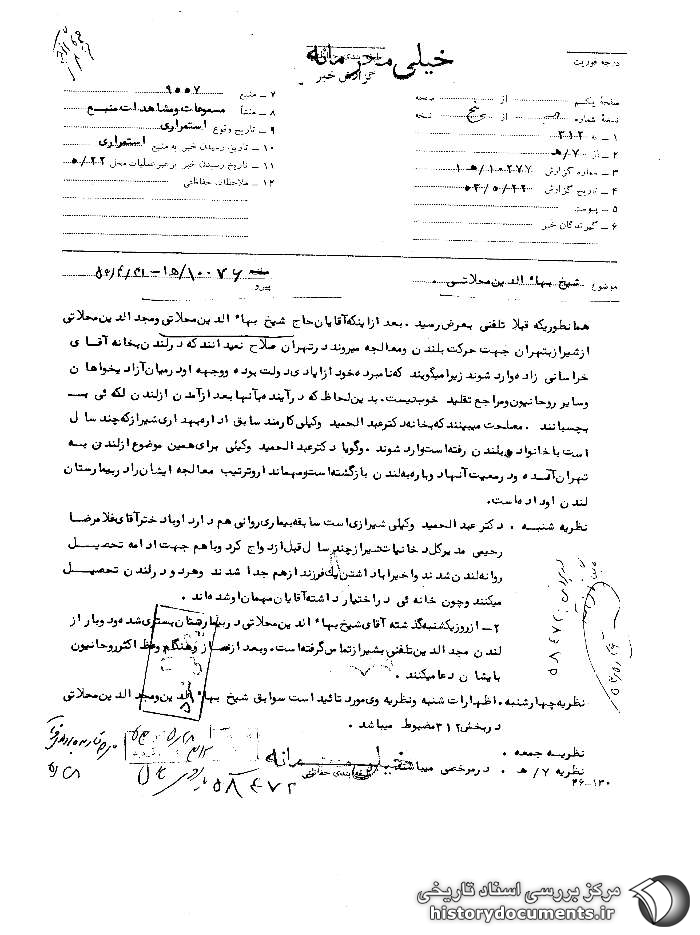 خیلی محرمانه
گزارش خبر
درجه فوریت
صفحه یکم از صفحه
نسخه شماره از پنج نسخه
۱ ـ به ۳۱۲
۲ ـ از ۷/هـ
۳ ـ شماره گزارش ۱۰۲۷۷/هـ۱
۴ ـ تاریخ گزارش ۵۳/۵/۲۲
۵ ـ پیوست
۶ ـ گیرندگان خبر
۷ ـ منبع ۹۰۰۷
۸ ـ منشأ مسموعات و مشاهدات منبع
۹ ـ تاریخ وقوع استمراری
۱۰ ـ تاریخ رسیدن خبر به منبع استمراری
۱۱ ـ تاریخ رسیدن خبر برهبر عملیات محل ۵/۲۲
۱۲ ـ ملاحظات حفاظتی
موضوع شیخ بهاء الدین محلاتی .
پیرو ۱۰۰۷۶/هـ۱
همانطوریکه قبلا تلفنی بعرض رسید . بعد از اینکه آقایان حاج شیخ بهاء الدین محلاتی و مجد الدین محلاتی
از شیراز بتهران جهت حرکت بلندن و معالجه میروند در تهران صلاح نمیدانند که در لندن بخانه آقای
خراسانی زاده وارد شوند زیرا میگویند که نامبرده خود از ایادی دولت بوده و وجهه او در میان آزادیخواهان
و سایر روحانیون و مراجع تقلید خوب نیست . بدین لحاظ که در آینده بآنها بعد از آمدن از لندن لکه ئی
بچسبانند . مصلحت میبینند که بخانه دکتر عبد الحمید وکیلی کارمند سابق اداره بهداری شیراز که چند سال
است با خانواده بلندن رفته است وارد شوند . و گویا دکتر عبد الحمید وکیلی برای همین موضوع از لندن به
تهران آمده و در معیت آنها دوباره به لندن بازگشته است و مهماندار و ترتیب معالجه ایشان را در بیمارستان
لندن او داده است .
نظریه شنبه . دکتر عبد الحمید وکیلی شیرازی است سابقه بیماری روانی هم دارد او با دختر آقای غلامرضا
رحیمی مدیر کل دخانیات شیراز چند سال قبل ازدواج کرد و باهم جهت ادامه تحصیل
روانه لندن شدند و اخیرا با داشتن یک فرزند از هم جدا شدند و هر دو در لندن تحصیل
میکنند و چون خانه ئی در اختیار داشته آقایان مهمان او شده اند .
۲ ـ از روز یکشنبه گذشته آقای شیخ بهاء الدین محلاتی در بیمارستان بستری شده و دوبار از
لندن مجد الدین تلفنی بشیراز تماس گرفته است . و بعد از نماز و هنگام وعظ اکثر روحانیون
بایشان دعا میکنند .
نظریه چهارشنبه . اظهارات شنبه و نظریه وی مورد تائید است سوابق شیخ بهاء الدین و مجد الدین محلاتی
در بخش ۳۱۲ مضبوط میباشد .
نظریه جمعه .
نظریه ۷/هـ . در مرخصی میباشد
خیلی محرمانه
طبقه بندی حفاظتی
۳۶ ـ ۱۳۰
۵۸۴۷۲
۵۸۴۷۲
مرکز بررسی اسناد تاریخی
historydocuments.ir